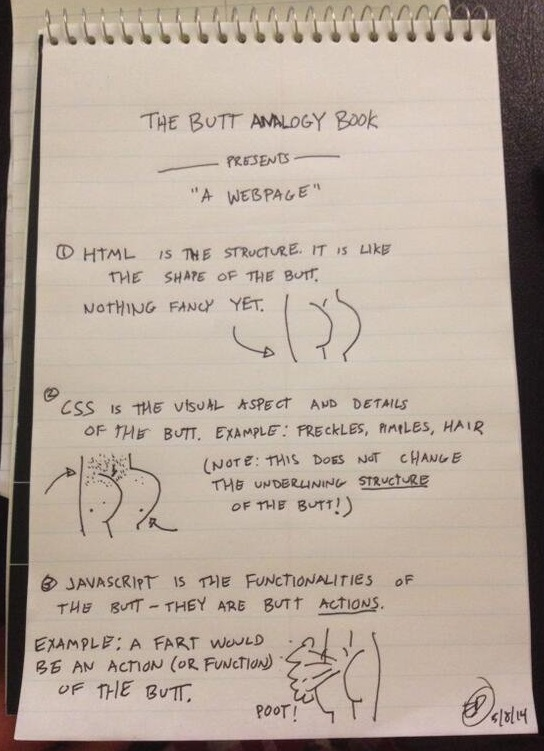 THE BUTT ANALOGY BOOK
PRESENTS
"A WEBPAGE"
① HTML IS THE STRUCTURE. IT IS LIKE
THE SHAPE OF THE BUTT.
NOTHING FANCY YET.
② CSS IS THE VISUAL ASPECT AND DETAILS
OF THE BUTT. EXAMPLE: FRECKLES, PIMPLES, HAIR
(NOTE: THIS DOES NOT CHANGE
THE UNDERLINING STRUCTURE
OF THE BUTT!)
③ JAVASCRIPT IS THE FUNCTIONALITIES OF
THE BUTT - THEY ARE BUTT ACTIONS.
EXAMPLE: A FART WOULD
BE AN ACTION (OR FUNCTION)
OF THE BUTT.
POOT!
5/8/14